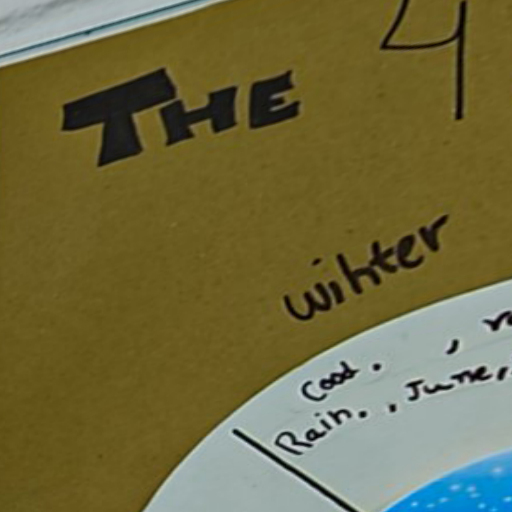 THE 4
winter
Cood. ,
Rain. , June,